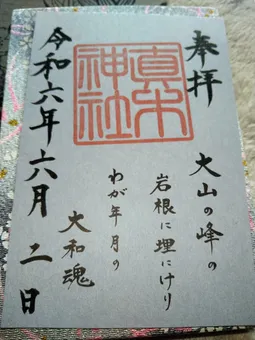 奉拝
大山の峰の
岩根に埋にけり
わが年月の
大和魂
真木神社
令和六年六月二日